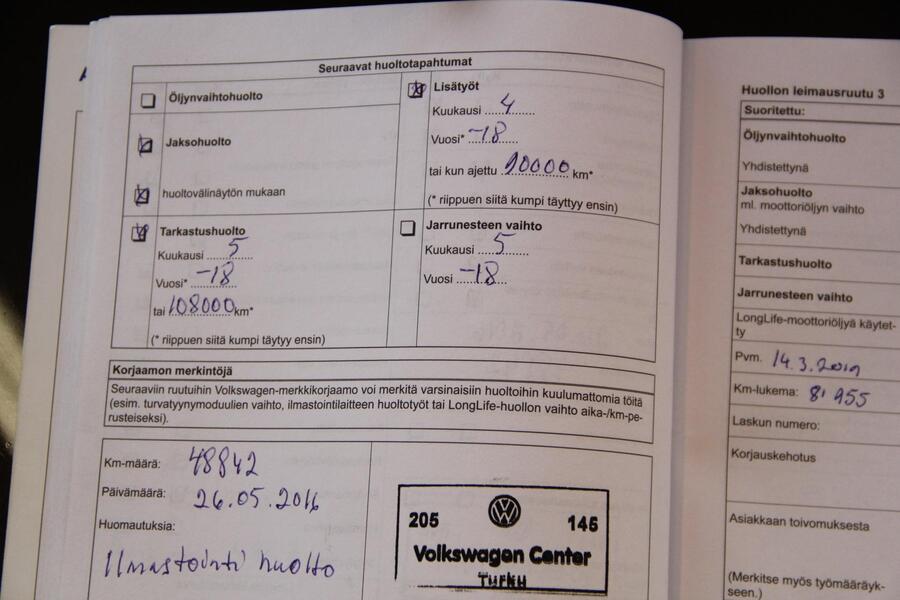 Seuraavat huoltotapahtumat
Öljynvaihtohuolto
Jaksohuolto
huoltovälinäytön mukaan
Lisätyöt
Kuukausi 4
Vuosi* -18
tai kun ajettu 90000 km*
(* riippuen siitä kumpi täyttyy ensin)
Tarkastushuolto
Kuukausi 5
Vuosi* -18
tai 108000 km*
(* riippuen siitä kumpi täytyy ensin)
Jarrunesteen vaihto
Kuukausi 5
Vuosi -18
Korjaamon merkintöjä
Seuraaviin ruutuihin Volkswagen-merkkikorjaamo voi merkitä varsinaisiin huoltoihin kuulumattomia töitä
(esim. turvatyynymoduulien vaihto, ilmastointilaitteen huoltotyöt tai LongLife-huollon vaihto aika-/km-pe-
rusteiseksi).
Km-määrä: 48842
Päivämäärä: 26.05.2016
Huomautuksia:
Ilmastointi huolto
205 145
Volkswagen Center
TURKU
Huollon leimausruutu 3
Suoritettu:
Öljynvaihtohuolto
Yhdistettynä
Jaksohuolto
ml. moottoriöljyn vaihto
Yhdistettynä
Tarkastushuolto
Jarrunesteen vaihto
LongLife-moottoriöljyä käytet-
ty
Pvm. 14.3.2019
Km-lukema: 81 955
Laskun numero:
Korjauskehotus
Asiakkaan toivomuksesta
(Merkitse myös työmääräyk-
seen.)